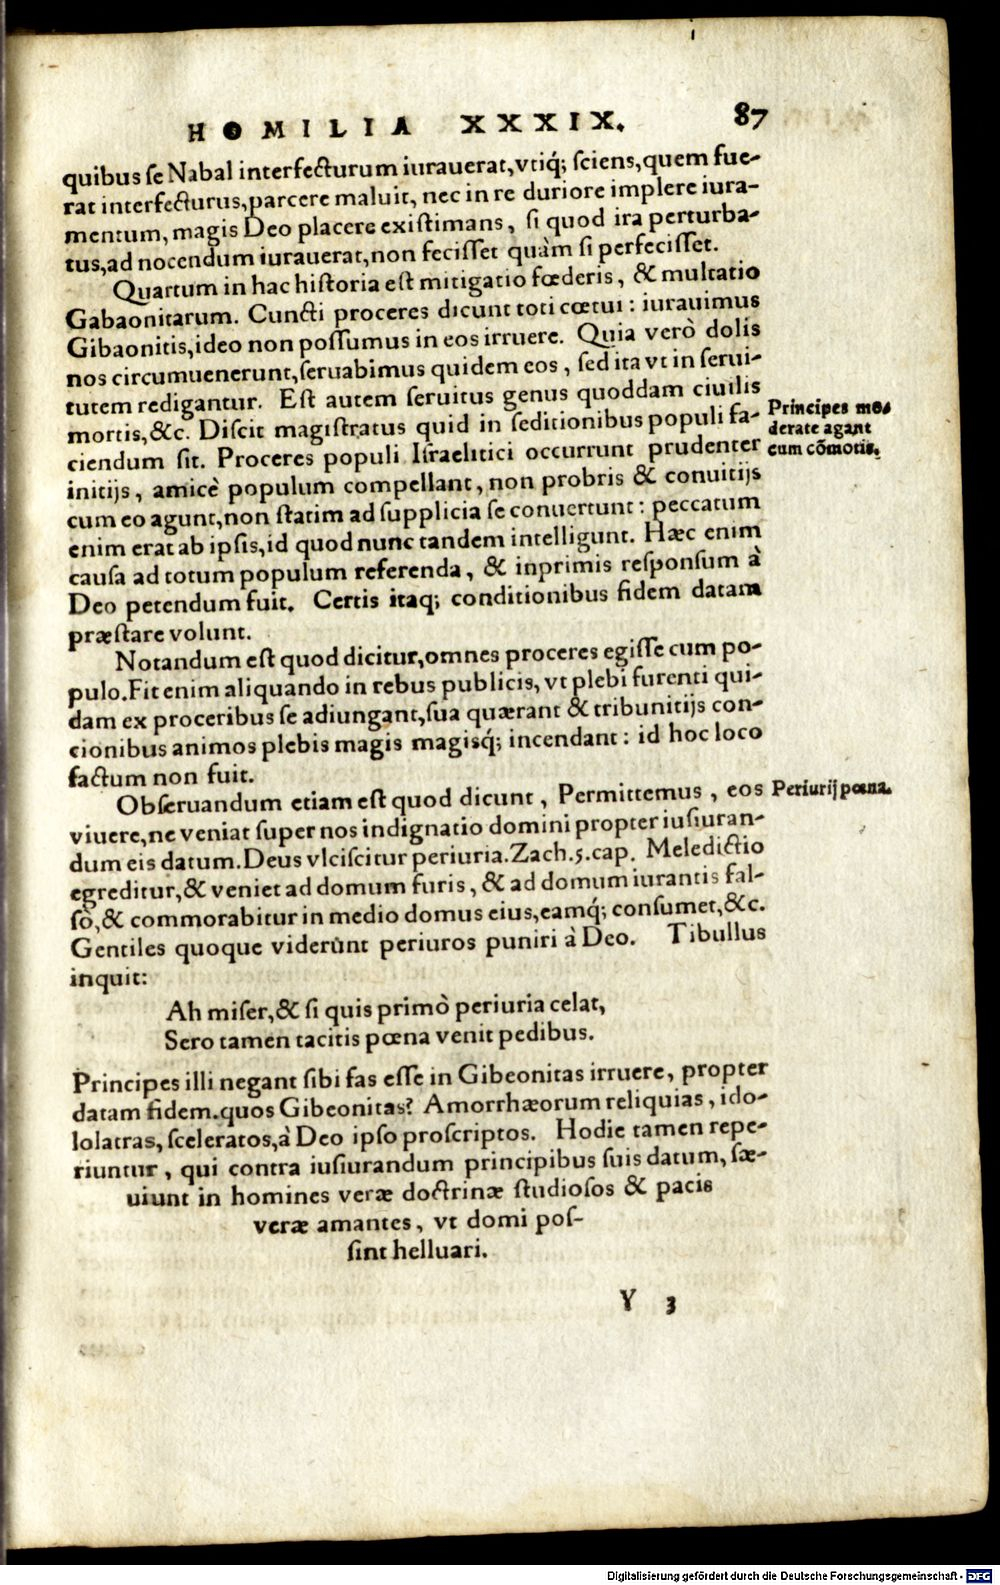 HOMILIA XXXIX. 87
quibus se Nabal interfecturum iurauerat, vtiq́; sciens, quem fue-
rat interfecturus, parcere maluit, nec in re duriore implere iura-
mentum, magis Deo placere existimans, si quod ira perturba-
tus, ad nocendum iurauerat, non fecisset quàm si perfecisset.
Quartum in hac historia est mitigatio fœderis, & multatio
Gabaonitarum. Cuncti proceres dicunt toti cœtui: iurauimus
Gibaonitis, ideo non possumus in eos irruere. Quia verò dolis
nos circumuenerunt, seruabimus quidem eos, sed ita vt in serui-
tutem redigantur. Est autem seruitus genus quoddam ciuilis
mortis, &c. Discit magistratus quid in seditionibus populi fa-
ciendum sit. Proceres populi Israelitici occurrunt prudenter
initijs, amicè populum compellant, non probris & conuitijs
cum eo agunt, non statim ad supplicia se conuertunt: peccatum
enim erat ab ipsis, id quod nunc tandem intelligunt. Hæc enim
causa ad totum populum referenda, & inprimis responsum à
Deo petendum fuit. Certis itaq; conditionibus fidem datam
præstare volunt.
Principes mo-
derate agant
cum cōmotis.
Notandum est quod dicitur, omnes proceres egisse cum po-
pulo. Fit enim aliquando in rebus publicis, vt plebi furenti qui-
dam ex proceribus se adiungant, sua quærant & tribunitijs con-
cionibus animos plebis magis magisq́; incendant: id hoc loco
factum non fuit.
Obseruandum etiam est quod dicunt, Permittemus, eos
viuere, ne veniat super nos indignatio domini propter iusiuran-
dum eis datum. Deus vlciscitur periuria. Zach. 5. cap. Meledictio
egreditur, & veniet ad domum furis, & ad domum iurantis fal-
sò, & commorabitur in medio domus eius, eamq́; consumet, &c.
Gentiles quoque viderũnt periuros puniri à Deo. Tibullus
inquit:
Periurij pœna.
Ah miser, & si quis primò periuria celat,
Sero tamen tacitis pœna venit pedibus.
Principes illi negant sibi fas esse in Gibeonitas irruere, propter
datam fidem. quos Gibeonitas? Amorrhæorum reliquias, ido-
lolatras, sceleratos, à Deo ipso proscriptos. Hodie tamen repe-
riuntur, qui contra iusiurandum principibus suis datum, sæ-
uiunt in homines veræ doctrinæ studiosos & pacis
veræ amantes, vt domi pos-
sint helluari.
Y 3
Digitalisierung gefördert durch die Deutsche Forschungsgemeinschaft - DFG